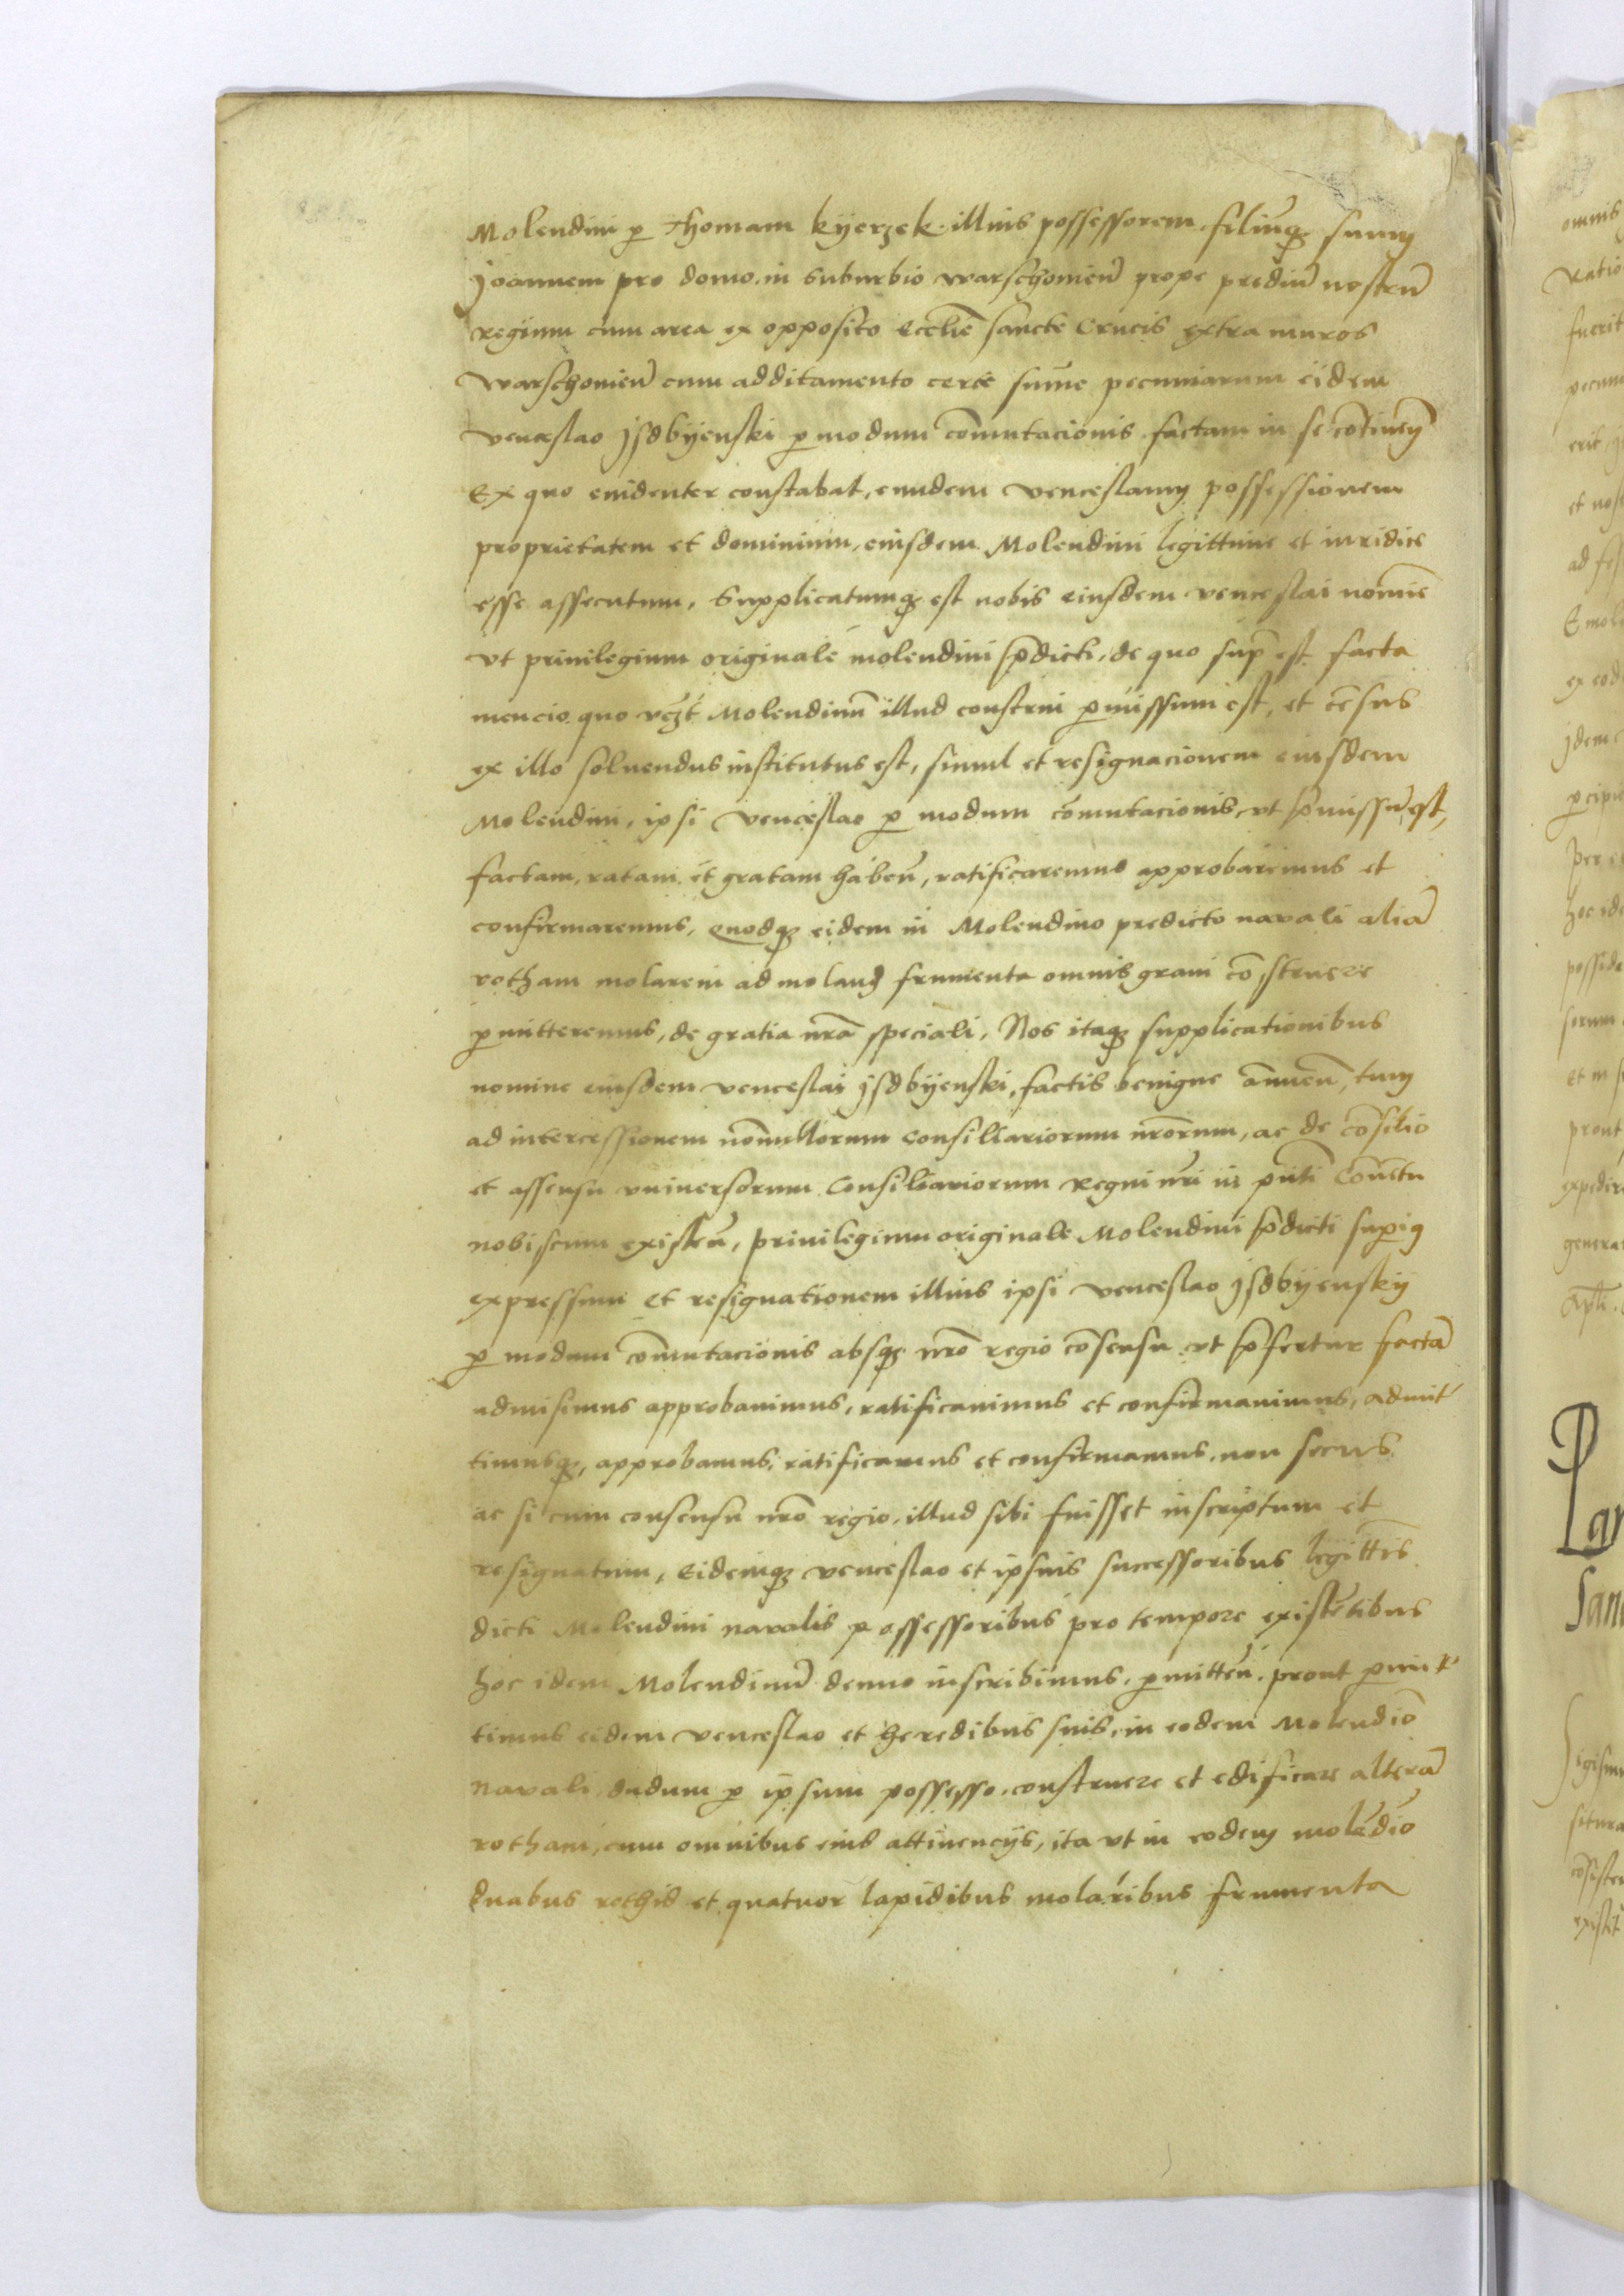 Molendini p Thomam Kyerzek illius possessorem filiūq suum
Joannem pro domo in Suburbio warschouień prope prediū nostrū
regium cum area ex opposito Ecclie sancte Crucis extra muros
warschouień cum additamento certe sume pecuniarum eidem
venceslao Jsdbyenski p modum comutacionis factam in se cotineñ
Ex quo euidenter constabat, eundem venceslaum possessionem
proprietatem et dominium eiusdem Molendini legittime et iuridice
esse assecutum, Supplicatumq est nobis eiusdem venceslai nomie
vt priuilegium originale molendini pdicti, de quo sup est facta
mencio quo vczt Molendinū illud construi pmissum est, et cēsus
ex illo soluendus institutus est, simul et resignacionem eiusdem
Molendini, ipsi venceslao p modum comutacionis, vt pmissū est,
factam, ratam et gratam habeñ, ratificaremus approbaremus et
confirmaremus, quodq eidem in Molendino predicto nauali aliā
rotham molarem ad moland frumenta omnis grani cōstruere
pmitteremus, de gratia nrā speciali, Nos itaq supplicationibus
nomine eiusdem venceslai Jsdbyenski, factis benigne ānueñ, tum
ad intercessionem nonullorum consiliariorum nrorum, ac de cōsilio
et assensu vniuersorum Consiliariorum Regni nri in pnti Conuētu
nobiscum existeñ, priuilegium originale Molendini pdicti supig
expressum et resignationem illius ipsi venceslao Jsdbyensky
p modum comutacionis absq nrō regio cōsensu vt pfertur factā
admisimus approbauimus, ratificauimus et confirmauimus, admit
timusq, approbamus, ratificamus et confirmamus, non secus
ac si cum consensu nrō regio, illud sibi fuisset inscriptum et
resignatum, Eidemq venceslao et ipsius successoribus legittīs
dicti Molendini naualis possessoribus pro tempore existētibus
hoc idem Molendinū denuo inscribimus, pmitteñ, prout pmit
timus eidem venceslao et heredibus suis, in eodem Molendiō
nauali, dudum p ipsum possesso, construere et edificare alterā
rotham, cum omnibus eius attinencijs, ita vt in eodem molēdiō
duabus rothis et quatuor lapidibus molaribus frumenta